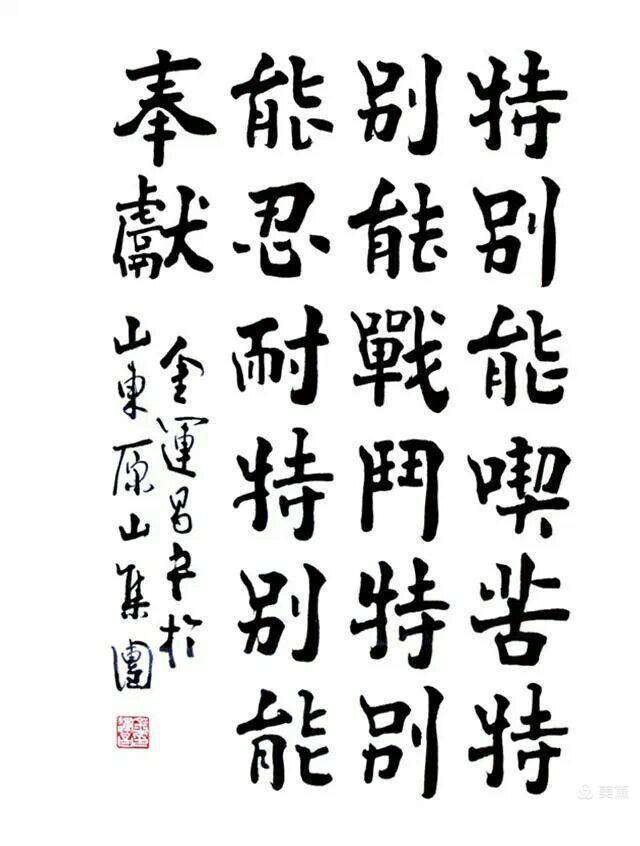 特別能喫苦特
別能戰鬥特別
能忍耐特別能
奉獻
金運昌书於
山東原山集團
美篇